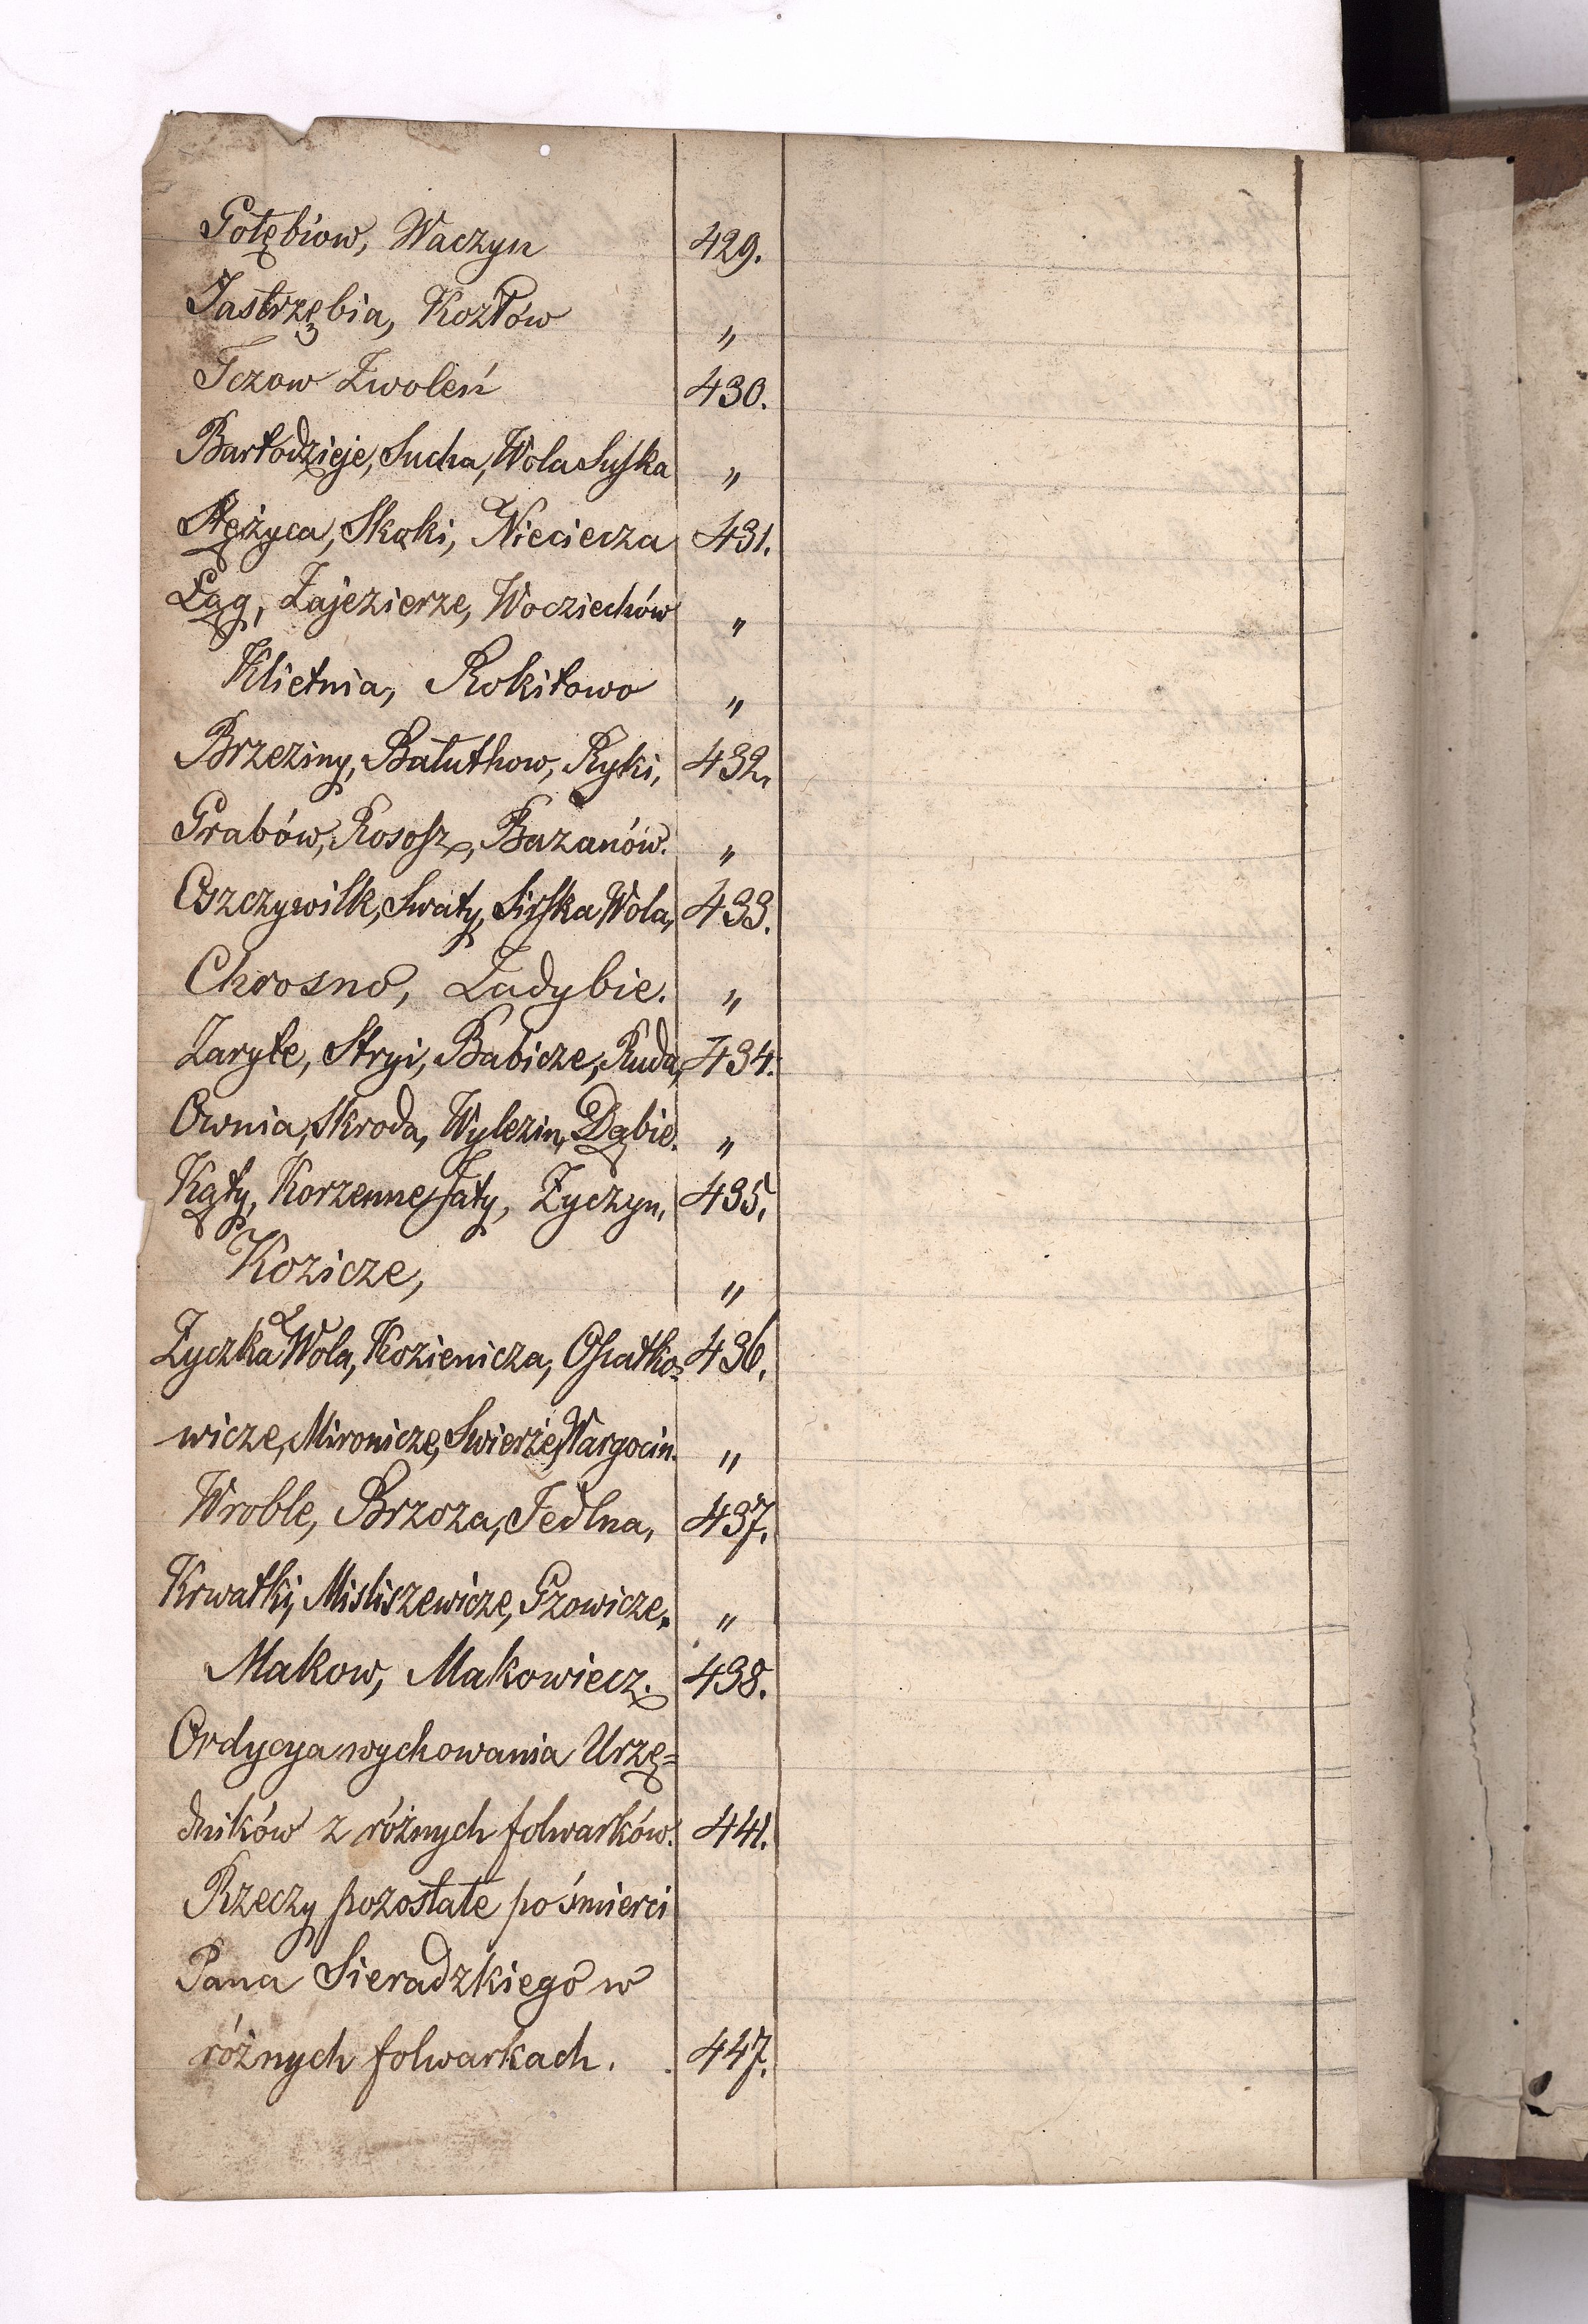 Gołębiow, Waczyn 429.
Jastrzębia, Kozłów „
Tczow Zwoleń 430.
Bartodzieje, Sucha, Wola Suska „
Stężyca, Skoki, Nieciecza 431.
Łąg, Zajezierze, Wocziechów „
Klietnia, Rokitowo „
Brzeziny, Bałuthow, Ryki, 432.
Grabów, Rososz, Bazanów. „
Oszczywilk, Swaty, Sirska Wola, 433.
Chrosno, Zadybie. „
Zaryte, Stryi, Babicze, Ruda, 434.
Ownia, Skroda, Wylezin, Dąbie. „
Kąty, Korzenne Jaty, Życzyn, 435.
Kozicze, „
Zyczka Wola, Kozienicza, Opatko- 436.
wicze, Mironicze, Swierże, Wargocin. „
Wroble, Brzoza, Jedlna, 437.
Krwatki, Misliszewicze, Gzowicze, „
Makow, Makowiecz. 438.
Ordycya wychowania Urzę=
dników z różnych folwarków. 441.
Rzeczy pozostałe po śmierci
Pana Sieradzkiego w
różnych folwarkach. 447.